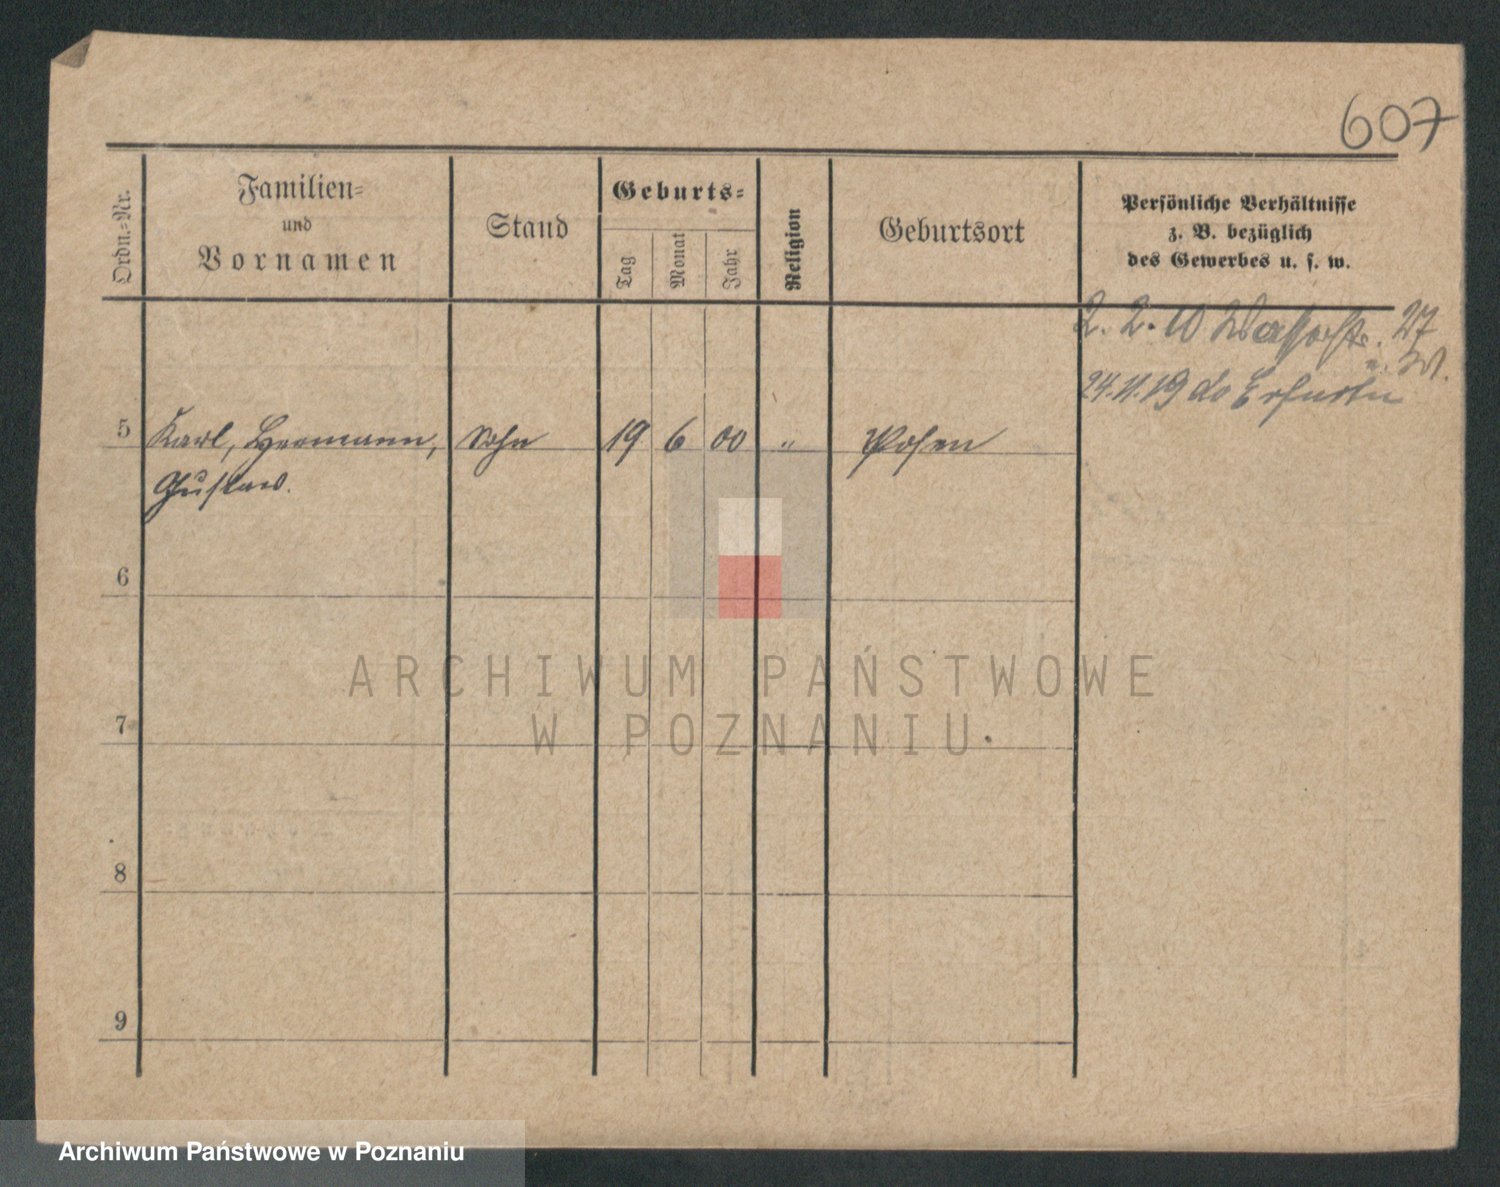 607
Ordn.-Nr.
Familien-
und
Vornamen
Stand
Geburts-
Tag
Monat
Jahr
Religion
Geburtsort
Persönliche Verhältnisse
z. B. bezüglich
des Gewerbes u. s. w.
2. 2. 10 Wasserstr. 27
24.11.19 do Erfurt
5 Karl, Hermann, Sohn 19 6 00 " Posen
Gustav.
6
7
8
9
ARCHIWUM PAŃSTWOWE
W POZNANIU
Archiwum Państwowe w Poznaniu